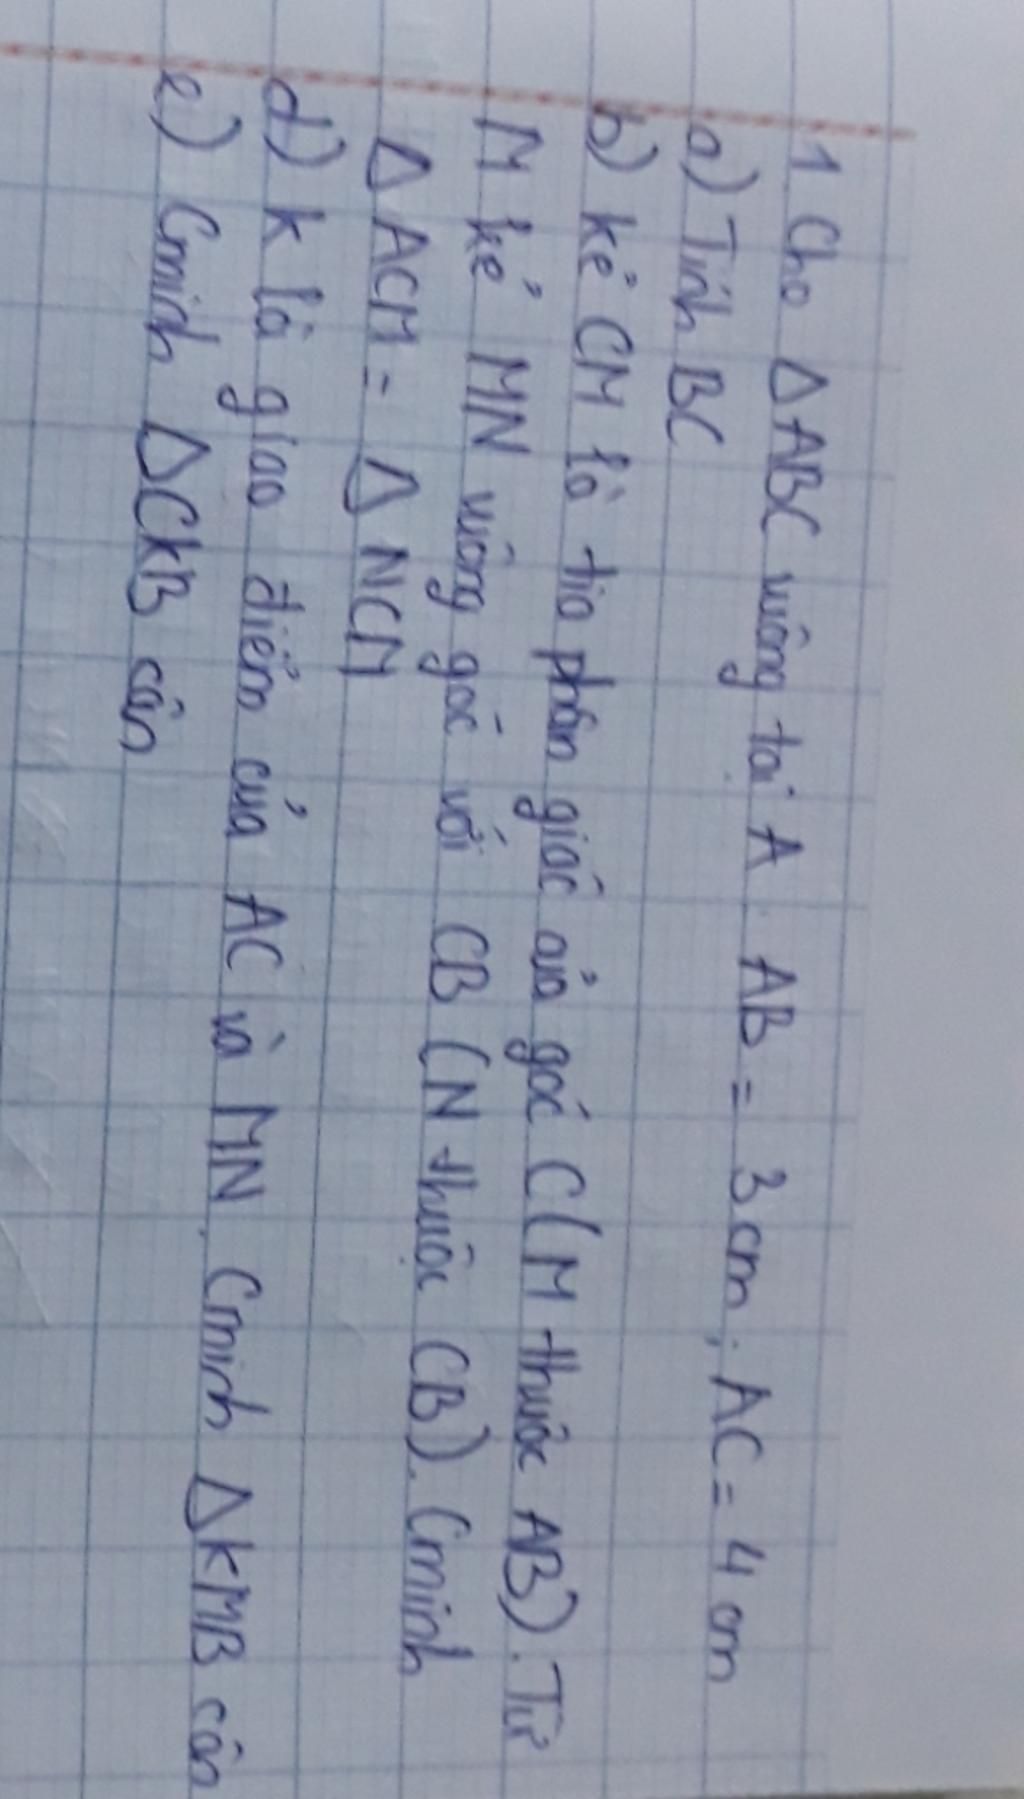 1 Cho ΔABC vuông tại A. AB = 3cm, AC = 4 cm
a) Tính BC
b) kẻ CM là tia phân giác của góc C (M thuộc AB). Từ
M kẻ MN vuông góc với CB (N thuộc CB). Cminh
Δ ACM = Δ NCM
d) K là giao điểm của AC và MN. Cminh ΔKMB cân
e) Cminh ΔCKB cân